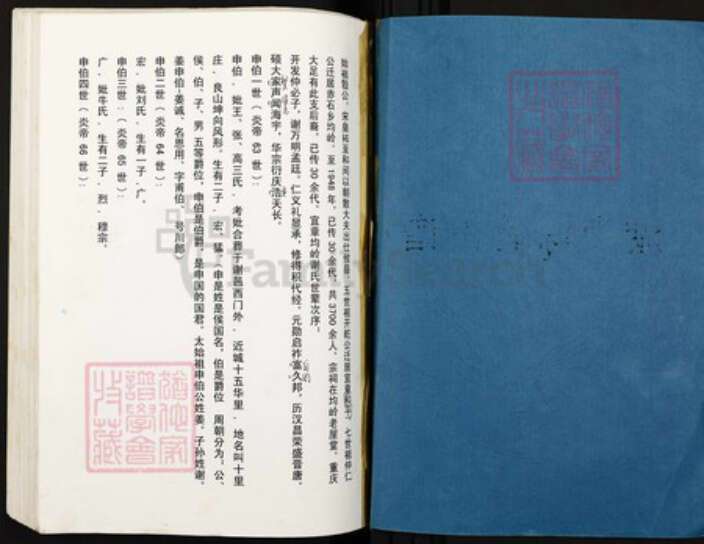 始祖勉公，宋皇祐至和间以朝散大夫出仕桂阳，五世祖开屺公迁居宜章和平，七世祖仲仁
公迁居赤石乡均岭，至 1948 年，已传 30 余代，共 3700 余人，宗祠在均岭老屋堂，重庆
大足有此支后裔，已传 30 余代，宜章均岭谢氏世辈次序。
开发仲必子，谢万明孟廷。仁义礼显承，修得积代经。元勋启祚富久邦，历汉昌荣盛晋唐，
硕大家声闻海宇，华宗衍庆浩天长。
申伯一世（炎帝 63 世）：
申伯，妣王、张、高三氏，考妣合葬于谢邑西门外，近城十五华里，地名叫十里
庄，良山坤向凤形，生有二子，宏、猛，申是姓是侯国名，伯是爵位 周朝分为：公、
侯、伯、子、男 五等爵位，申伯是伯爵，是申国的国君，太始祖申伯公姓姜，子孙姓谢，
姜申伯-姜诚，名恩用，字甫伯，号川郎）
申伯二世（炎帝 64 世）：
宏，妣刘氏，生有一子，广，
申伯三世（炎帝 65 世）：
广，妣牛氏，生有二子，烈，穆宗，
申伯四世（炎帝 66 世）：
FamilySearch